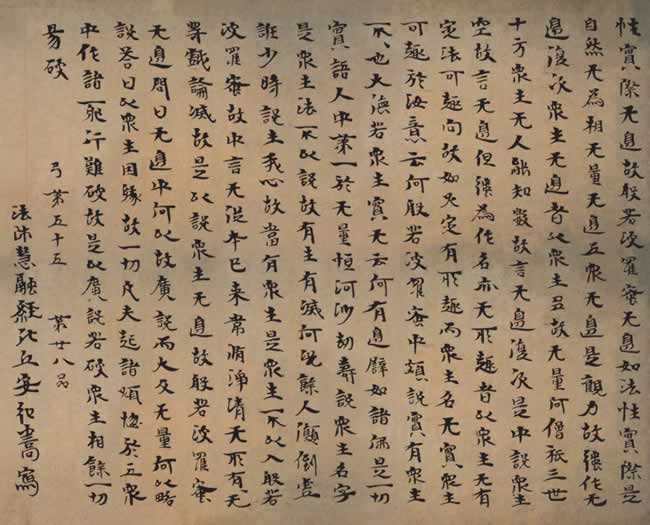 性實際无邊故般若波羅蜜无邊如法性實際是
自然无為相无量无邊五衆无邊是觀力故強作无
邊復次衆生无邊者以衆生多故无量阿僧祇三世
十方衆生无人能知數故言无邊復次是中説衆生
空故言无邊但強為作名亦无所趣者以衆生无有
定法可趣向故如火定有所趣而衆生名无實衆生
可趣於汝意云何般若波羅蜜中頗説實有衆生
不、也大德若衆生實无云何有邊譬如諸佛是一切
實語人中第一於无量恒河沙劫壽説衆生名字
是衆生法不以説故有生有滅何況餘人顛倒虛
誑少時説生我心故當有衆生是衆生不以入般若
波羅蜜故中言无從本已来常淨清无所有无
等戲論滅故是以説衆生无邊故般若波羅蜜
无邊問曰无邊中何以故廣説而大及无量何以略
説荅曰以衆生因緣故一切凡夫起諸煩惱於五衆
中作諸耶行難破故是以廣説若破衆生相餘一切
易破
弓第五十五 第廿八品
法師慧融經比丘安弘嵩寫